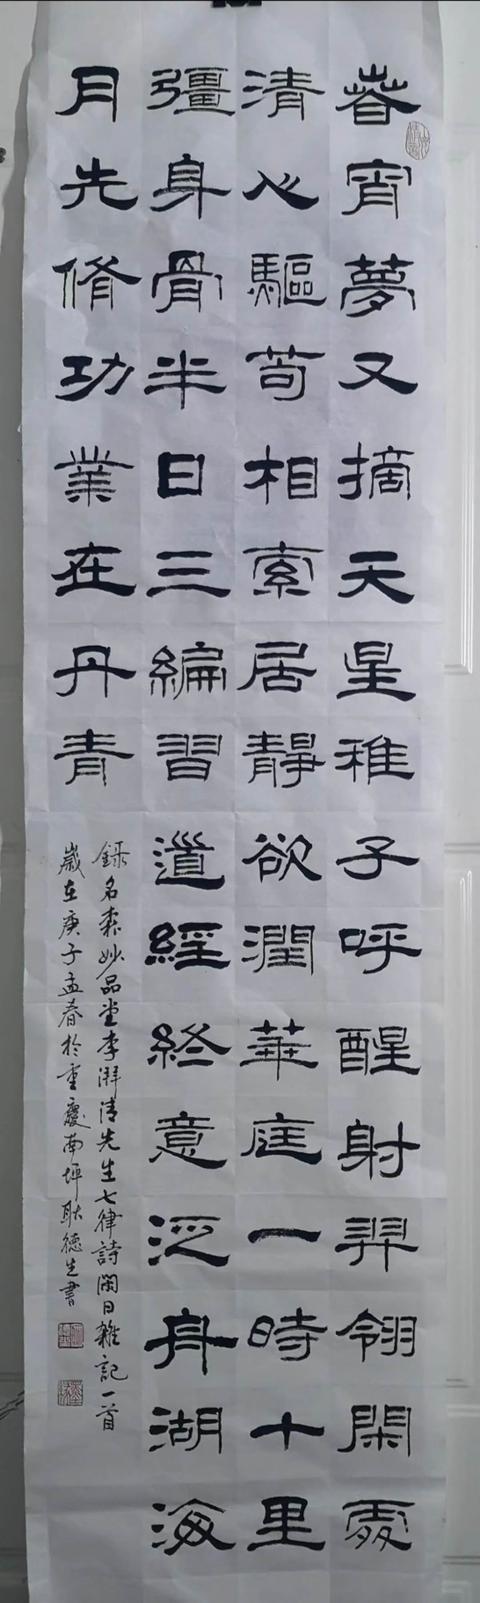 春宵夢又摘天星稚子呼醒射羿翎閑處
清心驅苟相索居靜欲潤華庭一時十里
彊身骨半日三編習道經終意泛舟湖海
月先脩功業在丹青
錄名森妙品堂李湃清先生七律詩閑日雜記一首
歲在庚子孟春於重慶南坪耿德生書